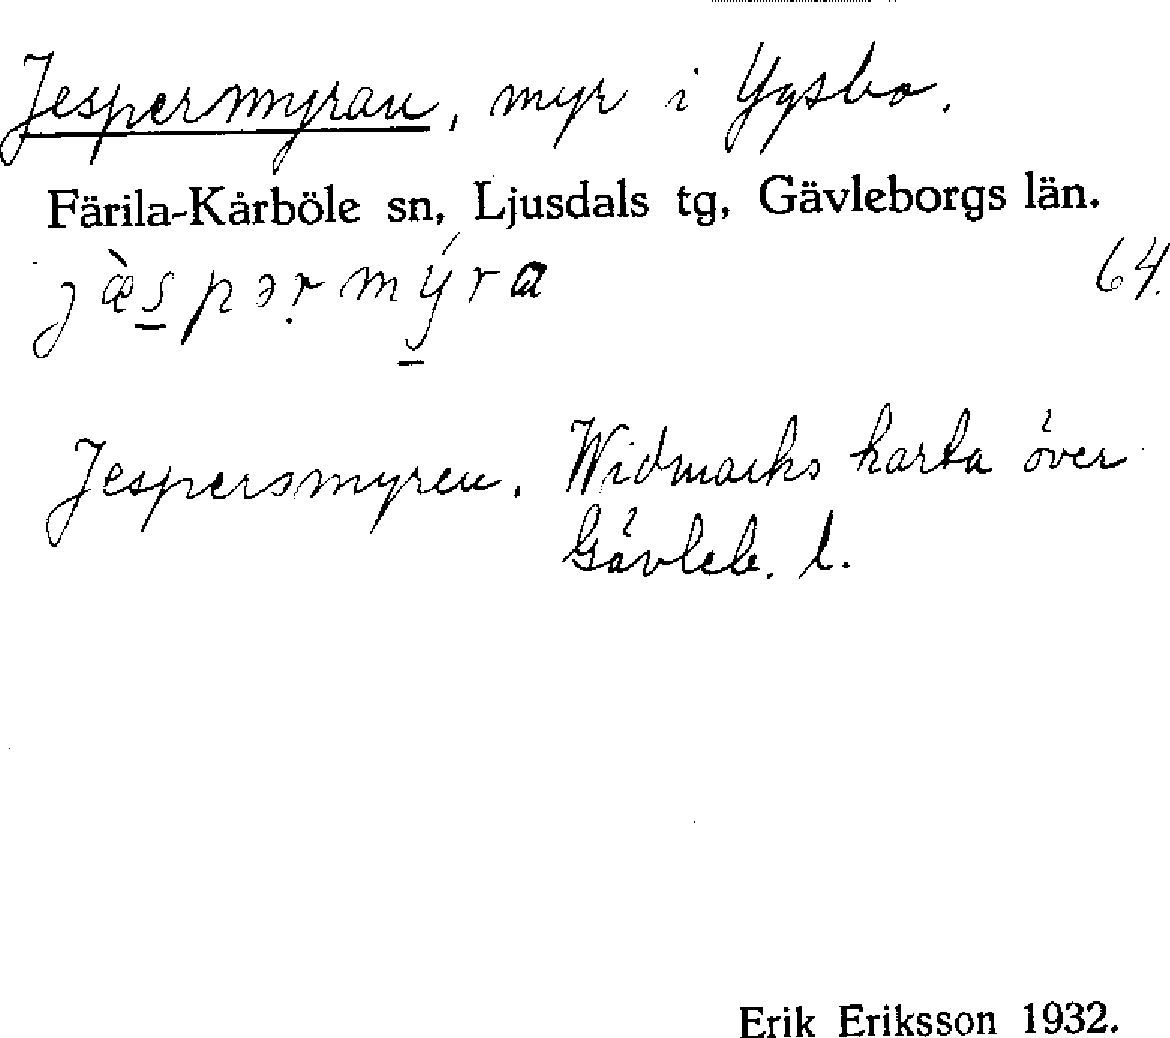 Jespermyran, myr i Ygsbo.
Färila-Kårböle sn, Ljusdals tg, Gävleborgs län.
jæ̀s̠pər̥mýra 64.
Jespersmyren. Widmarks karta över
Gävleb. l.
Erik Eriksson 1932.